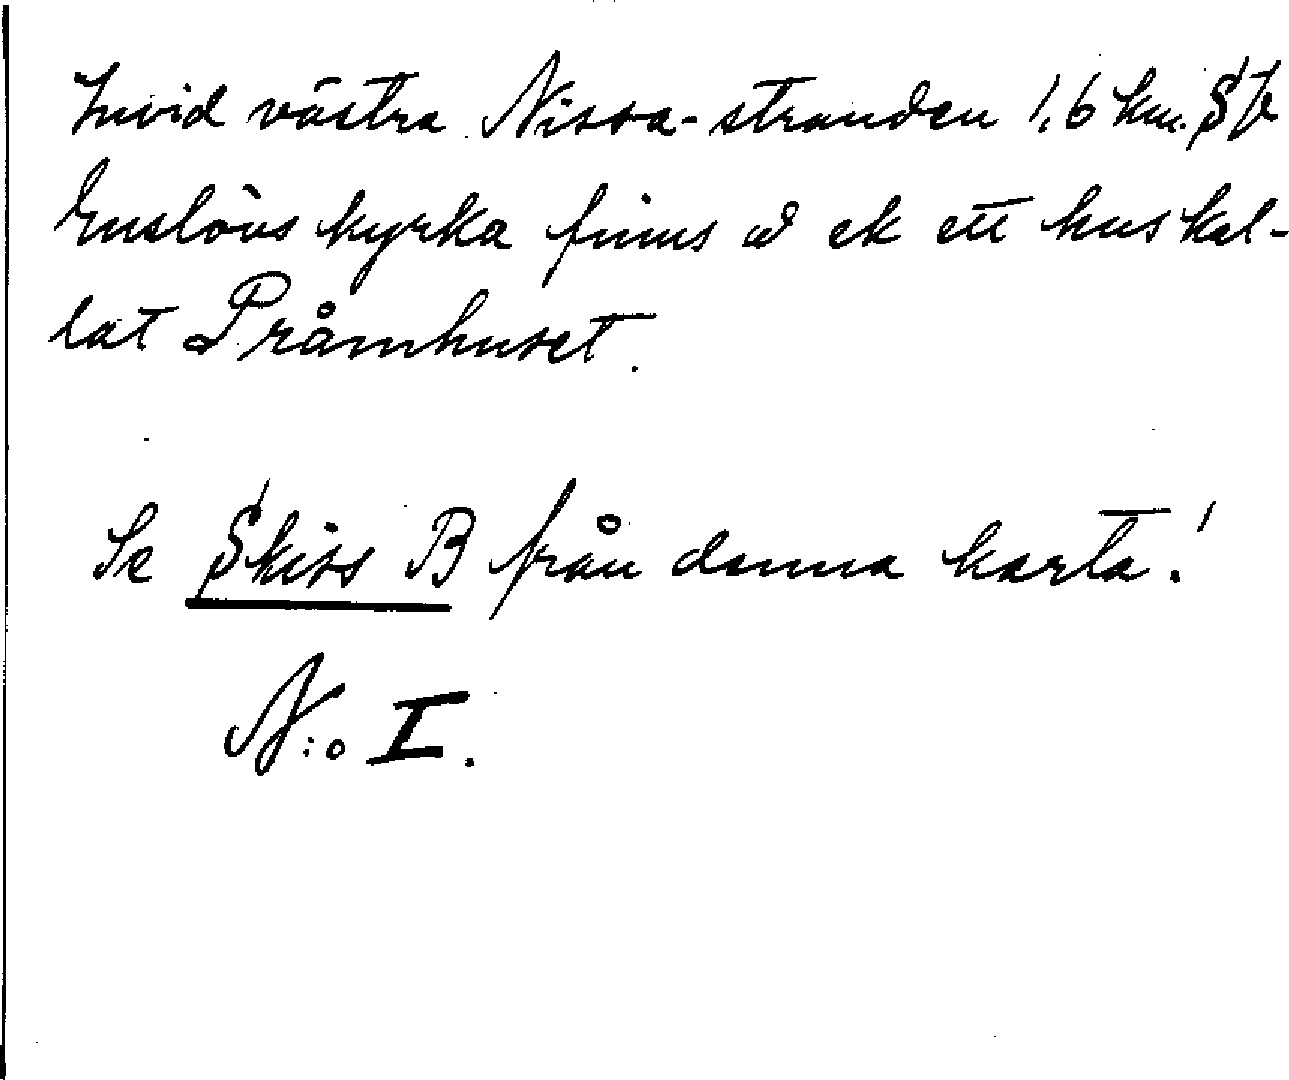 Invid västra Nissa-stranden 1,6 km. S fr
Enslövs kyrka finns å ek ett hus kal-
lat Pråmhuset.
Se Skiss B från denna karta!
N:o I.